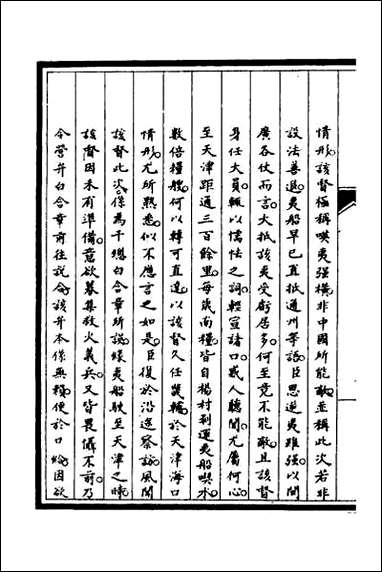 情形該督極稱𠸄夷强橫非中國所能敵並稱此次若非
設法善退夷船早已直抵通州等語臣思逆夷雖强以閩
廣各仗而言大抵該夷受虧居多何至竟不能敵且該督
身任大員輒以懦怯之詞輕宣諸口惑人聽聞尤屬何心
至天津距通三百餘里每歲南糧皆自楊村剥運夷船喫水
數倍糧艘何以轉可直達以該督久任畿輔於天津海口
情形尤所熟悉似不應言之如是臣復於沿途察訪風聞
該督此次係為千總白含章所誤緣夷船駛至天津之時
該督因未有準備意欲募集敢火義兵又皆畏懾不前乃
令營弁白含章前往說令該弁本係無賴便於口給因欲